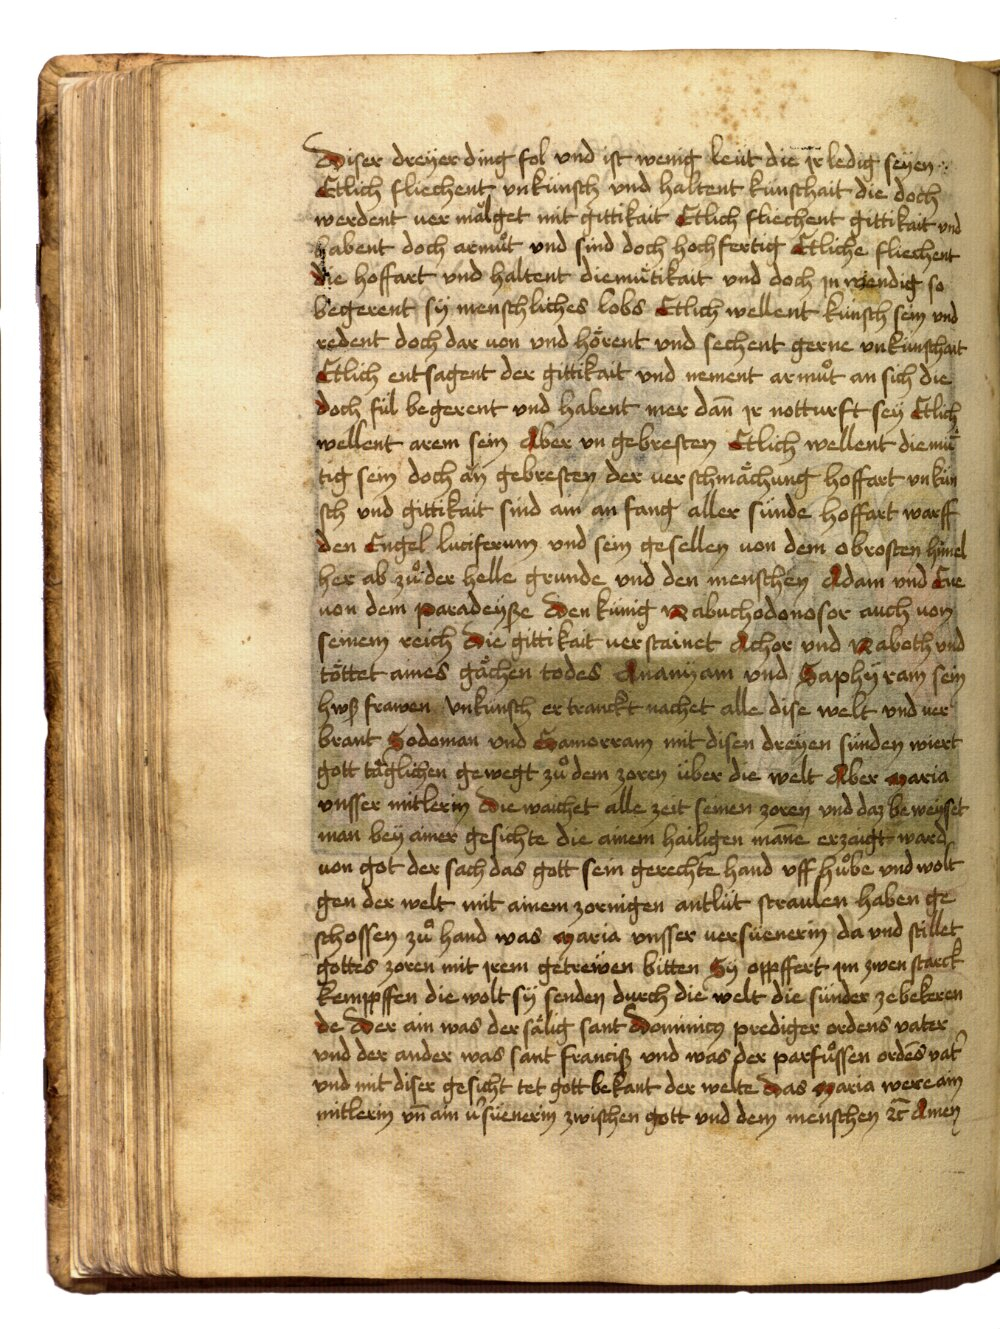 Diser dreyer ding fol vnd ist wenig leüt die ir ledig seyen
Etlich fliechent vnkünsch vnd haltent künschait die doch
werdent ver mälget mit gittikait Etlich fliechent gittikait vnd
habent doch armůt vnd sind doch hochfertig Etliche fliechent
die hoffart vnd haltent diemůtikait vnd doch jn wendig so
begerent sÿ menschliches lobs Etlich wellent künsch sein vnd
redent doch dar von vnd hörent vnd sechent gerne vnkünschait
Etlich entsagent der gittikait vnd nement armůt an sich die
doch fül begerent vnd habent mer dañ jr notturft seÿ Etlich
wellent arem sein Aber vn gebresten Etlich wellent diemü
tig sein doch an gebresten der verschmächung hoffart vnkün
sch vnd gittikait sind ain an fang aller sünde hoffart warff
den Engel luciferum vnd sein gesellen von dem obrosten himel
her ab zů der helle grunde vnd den menschen Adam vnd Eve
von dem Paradeÿße Den künig Nabuchodonosor auch von
seinem reich Die gittikait verstainet Achor vnd Naboth vnd
töttet aines gächen todes Ananÿam vnd Saphÿram sein
hwß frawen vnkünsch ertranckt nachet alle dise welt vnd ver
brant Sodoman vnd Gamorram mit disen dreÿen sünden wiert
gott täglichen gewegt zů dem zoren über die welt Aber Maria
vnsser mitlerin Die waichet alle zeit seinen zoren vnd daz beweÿset
man beÿ ainer gesichte die ainem hailigen mañe erzaigt ward
von got der sach das gott sein gerechte hand vff hůbe vnd wolt
gen der welt mit ainem zornigen antlüt straulen haben ge
schossen zů hand was Maria vnsser versüenerin da vnd stillet
gottes zoren mit jrem getrewen bitten Sÿ oppffert jm zwen starck
kempffen die wolt sÿ senden durch die welt die sünder ze bekeren
de Der ain was der sälig sant Dominicus prediger ordens vater
vnd der ander was sant Francisß vnd was der parfůssen ordēs vat'
vnd mit diser gesicht tet gott bekant der welte Das Maria were ain
mitlerin vn̄ ain v'süenerin zwischen gott vnd dem menschen ꝛc̄ Amen